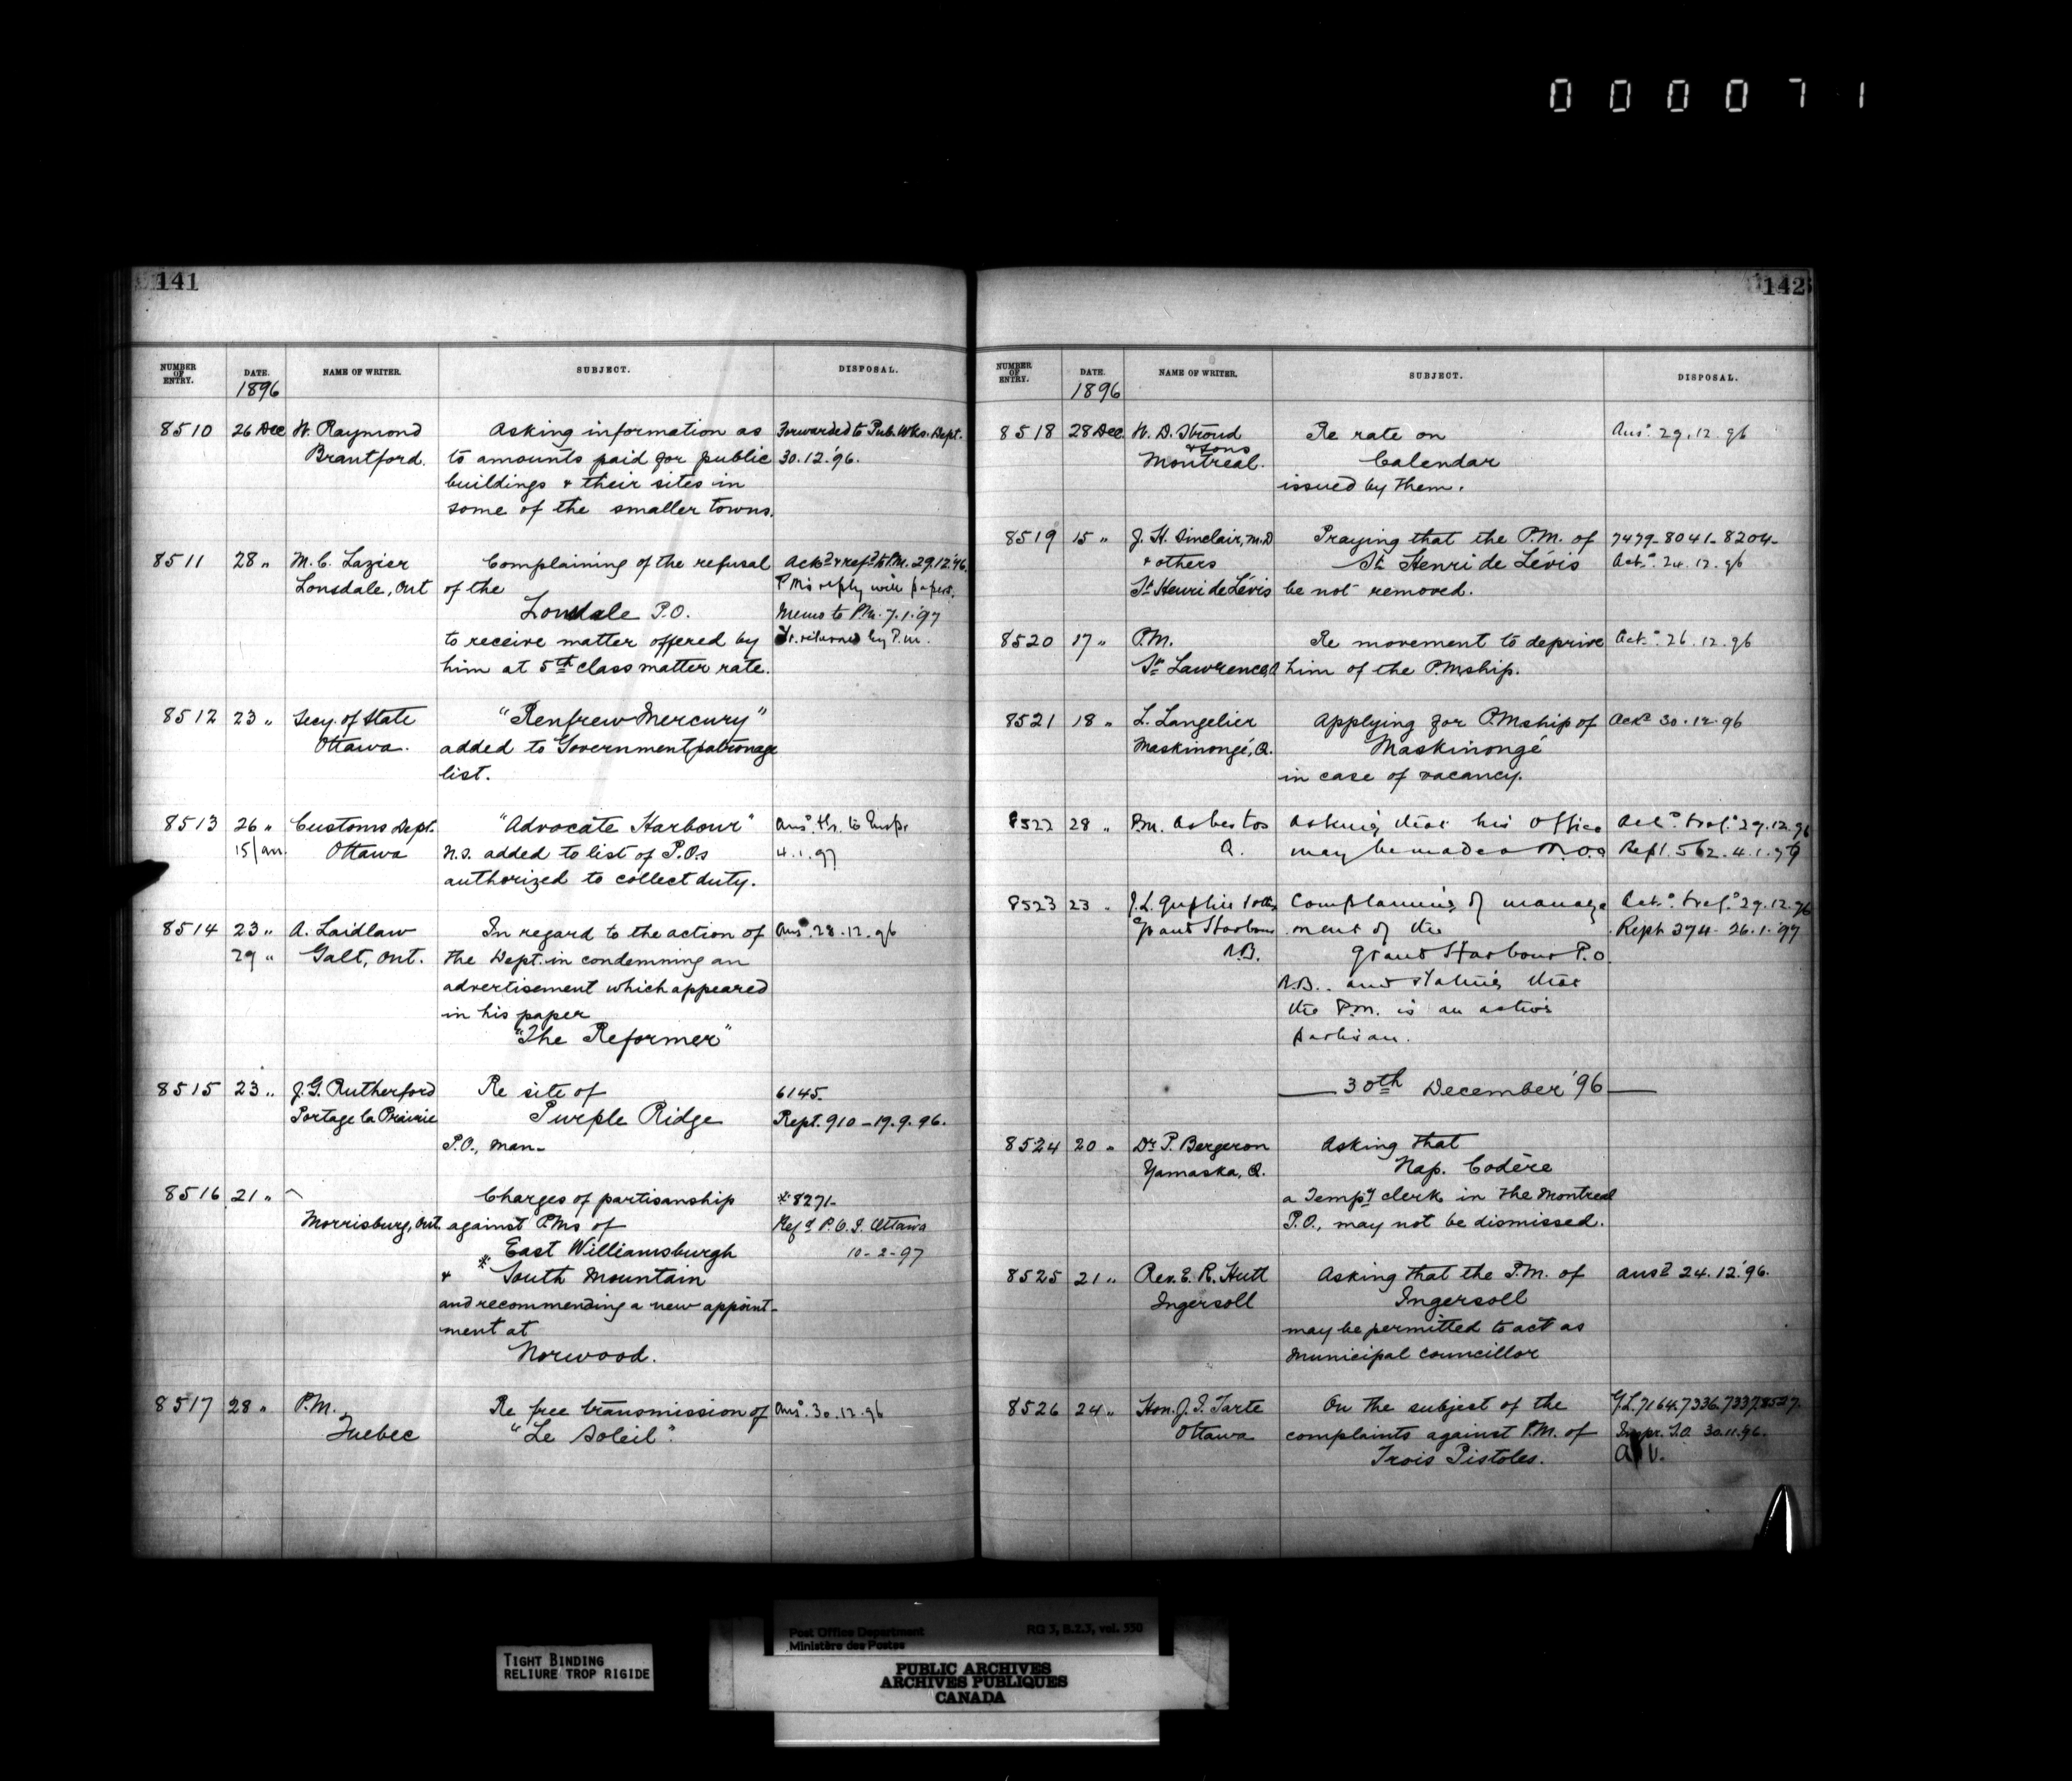 000071
141
NUMBER OF ENTRY. DATE. NAME OF WRITER. SUBJECT. DISPOSAL.
1896
8510 26 Dec W. Raymond Asking information as Forwarded to Pub. Wks. Dept.
Brantford. to amounts paid for public 30.12.'96.
buildings & their sites in
some of the smaller towns.
8511 28 " M. C. Lazier Complaining of the refusal Ackd & refd to P.M. 29.12.'96.
Lonsdale, Ont of the P.M's reply with papers.
Lonsdale P.O. Memo to P.M. 7.1.'97
to receive matter offered by returned by P.M.
him at 5th class matter rate.
8512 23 " Secy. of State "Renfrew Mercury"
Ottawa. added to Government patronage
list.
8513 26 " Customs Dept. "Advocate Harbour" Ansd. to Inspr
15 Jan. Ottawa N.S. added to list of P.O.s 4.1.97
authorized to collect duty.
8514 23 " A. Laidlaw In regard to the action of Ansd. 28.12.96
29 " Galt, Ont. the Dept. in condemning an
advertisement which appeared
in his paper
"The Reformer"
8515 23 " J. G. Rutherford Re site of 6145.
Portage la Prairie Purple Ridge Rept. 910 - 19.9.96.
P.O., Man-
8516 21 " Charges of partisanship *8271-
Morrisburg, Ont. against P.Ms of Refd P.O.I. Ottawa
East Williamsburgh 10-2-97
& *South Mountain
and recommending a new appoint-
ment at
Norwood.
8517 28 " P.M. Re free transmission of Ansd. 30.12.96
Quebec "Le Soleil".
142
NUMBER OF ENTRY. DATE. NAME OF WRITER. SUBJECT. DISPOSAL.
1896
8518 28 Dec. W. D. Stroud Re rate on Ansd. 29.12.96
& Sons
Montreal. Calendar
issued by them.
8519 15 " J. H. Sinclair, M.D Praying that the P.M. of 7479-8041-8204-
& others St. Henri de Lévis Ackd. 24.12.96
St Henri de Lévis be not removed.
8520 17 " P.M. Re movement to deprive Ackd. 26.12.96
St. Lawrence, him of the P.Mship.
8521 18 " L. Langelier Applying for P.Mship of Ackd 30.12.96
Maskinongé, Q. Maskinongé
in case of vacancy.
8522 28 " P.M. Asbestos Asking that his office Ackd. & refd. 29.12.96
Q. may be made a M.O.O Rept. 562. 4.1.97
8523 23 " J. L. & oths Complaining of manage Ackd. & refd. 29.12.96
Grand Harbour ment of the Rept. 374. 26.1.'97
N.B. Grand Harbour P.O.
N.B.. and stating that
the P.M. is an active
partisan.
30th December '96
8524 20 " Dr. P. Bergeron Asking that
Yamaska, Q. Nap. Codère
a Tempy clerk in the Montreal
P.O., may not be dismissed.
8525 21 " Rev. E. R. Hutt Asking that the P.M. of Ansd 24.12.'96.
Ingersoll Ingersoll
may be permitted to act as
Municipal councillor
8526 24 " Hon. J. I. Tarte On the subject of the G.L. 7164. 7336. 7337. 8527.
Ottawa complaints against P.M. of Inspr. 30.11.96.
Trois Pistoles.
Post Office Department RG 3, B.2.3, vol. 350
Ministère des Postes
TIGHT BINDING
RELIURE TROP RIGIDE
PUBLIC ARCHIVES
ARCHIVES PUBLIQUES
CANADA